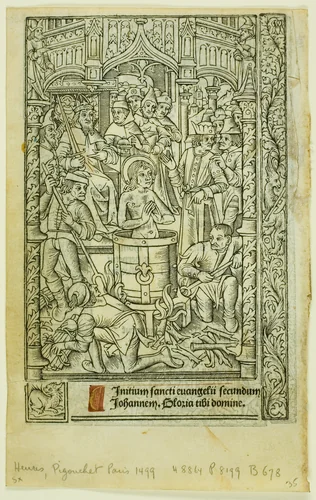 Initium sancti evangelii secundum
Johannem. Gloria tibi domine.
Heures, Pigouchet Paris 1499 H 8864 P 8199 B 678